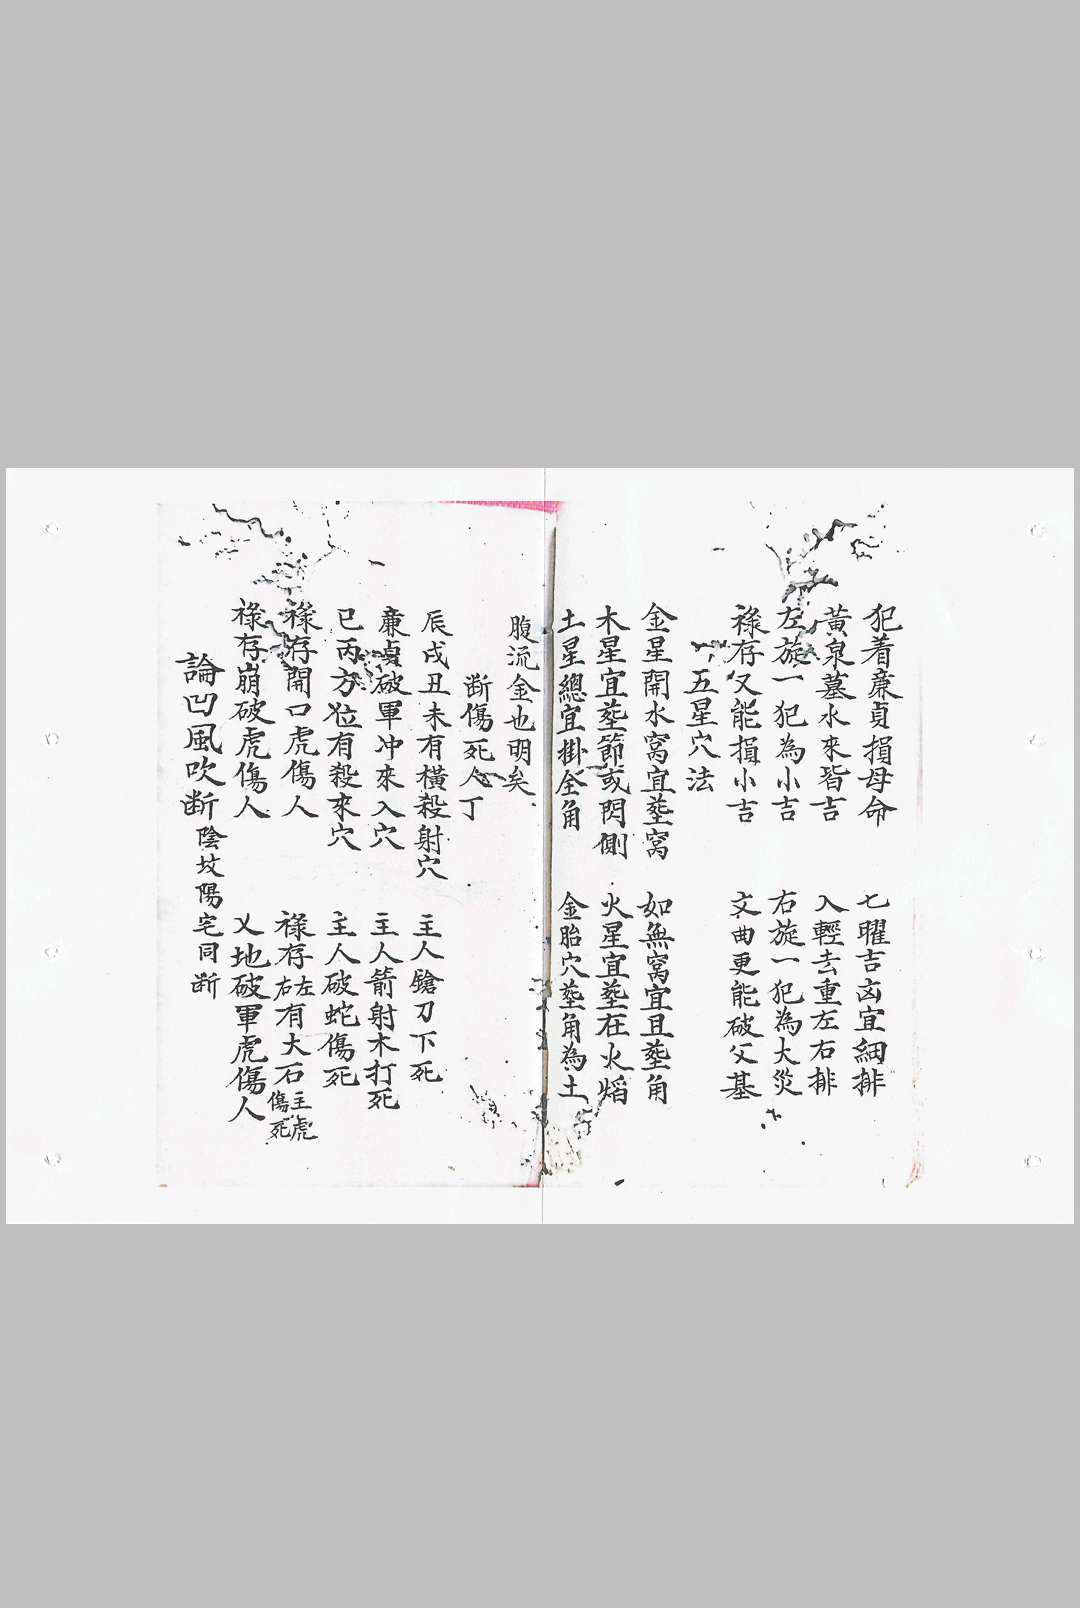 犯着亷貞損母命　七曜吉凶宜細排
黃泉墓水來皆吉　入輕去重左右排
左旋一犯為小吉　右旋一犯為大災
祿存又能損小吉　文曲更能破父基
五星穴法
金星開水窩宜塟窩　如無窩宜且塟角
木星宜塟節或閃側　火星宜塟在火熖
土星總宜掛金角　金胎穴塟角為土
腹流金也明矣
断傷死人丁
辰戌丑未有橫殺射穴　主人鎗刀下死
亷貞破軍冲來入穴　主人箭射木打死
巳丙方位有殺來穴　主人破蛇傷死
祿存開口虎傷人　祿存左右有大石主虎傷死
祿存崩破虎傷人　乂地破軍虎傷人
論凹風吹断陰坟陽宅同断